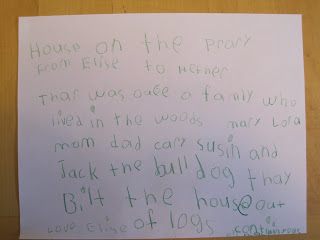 House on the prary
From Elise to Hether
Thar was ouce a family who
lived in the woods mary Lora
mom dad cary susin and
Jack the bull dog thay
Bilt the house out
Love Elise of logs